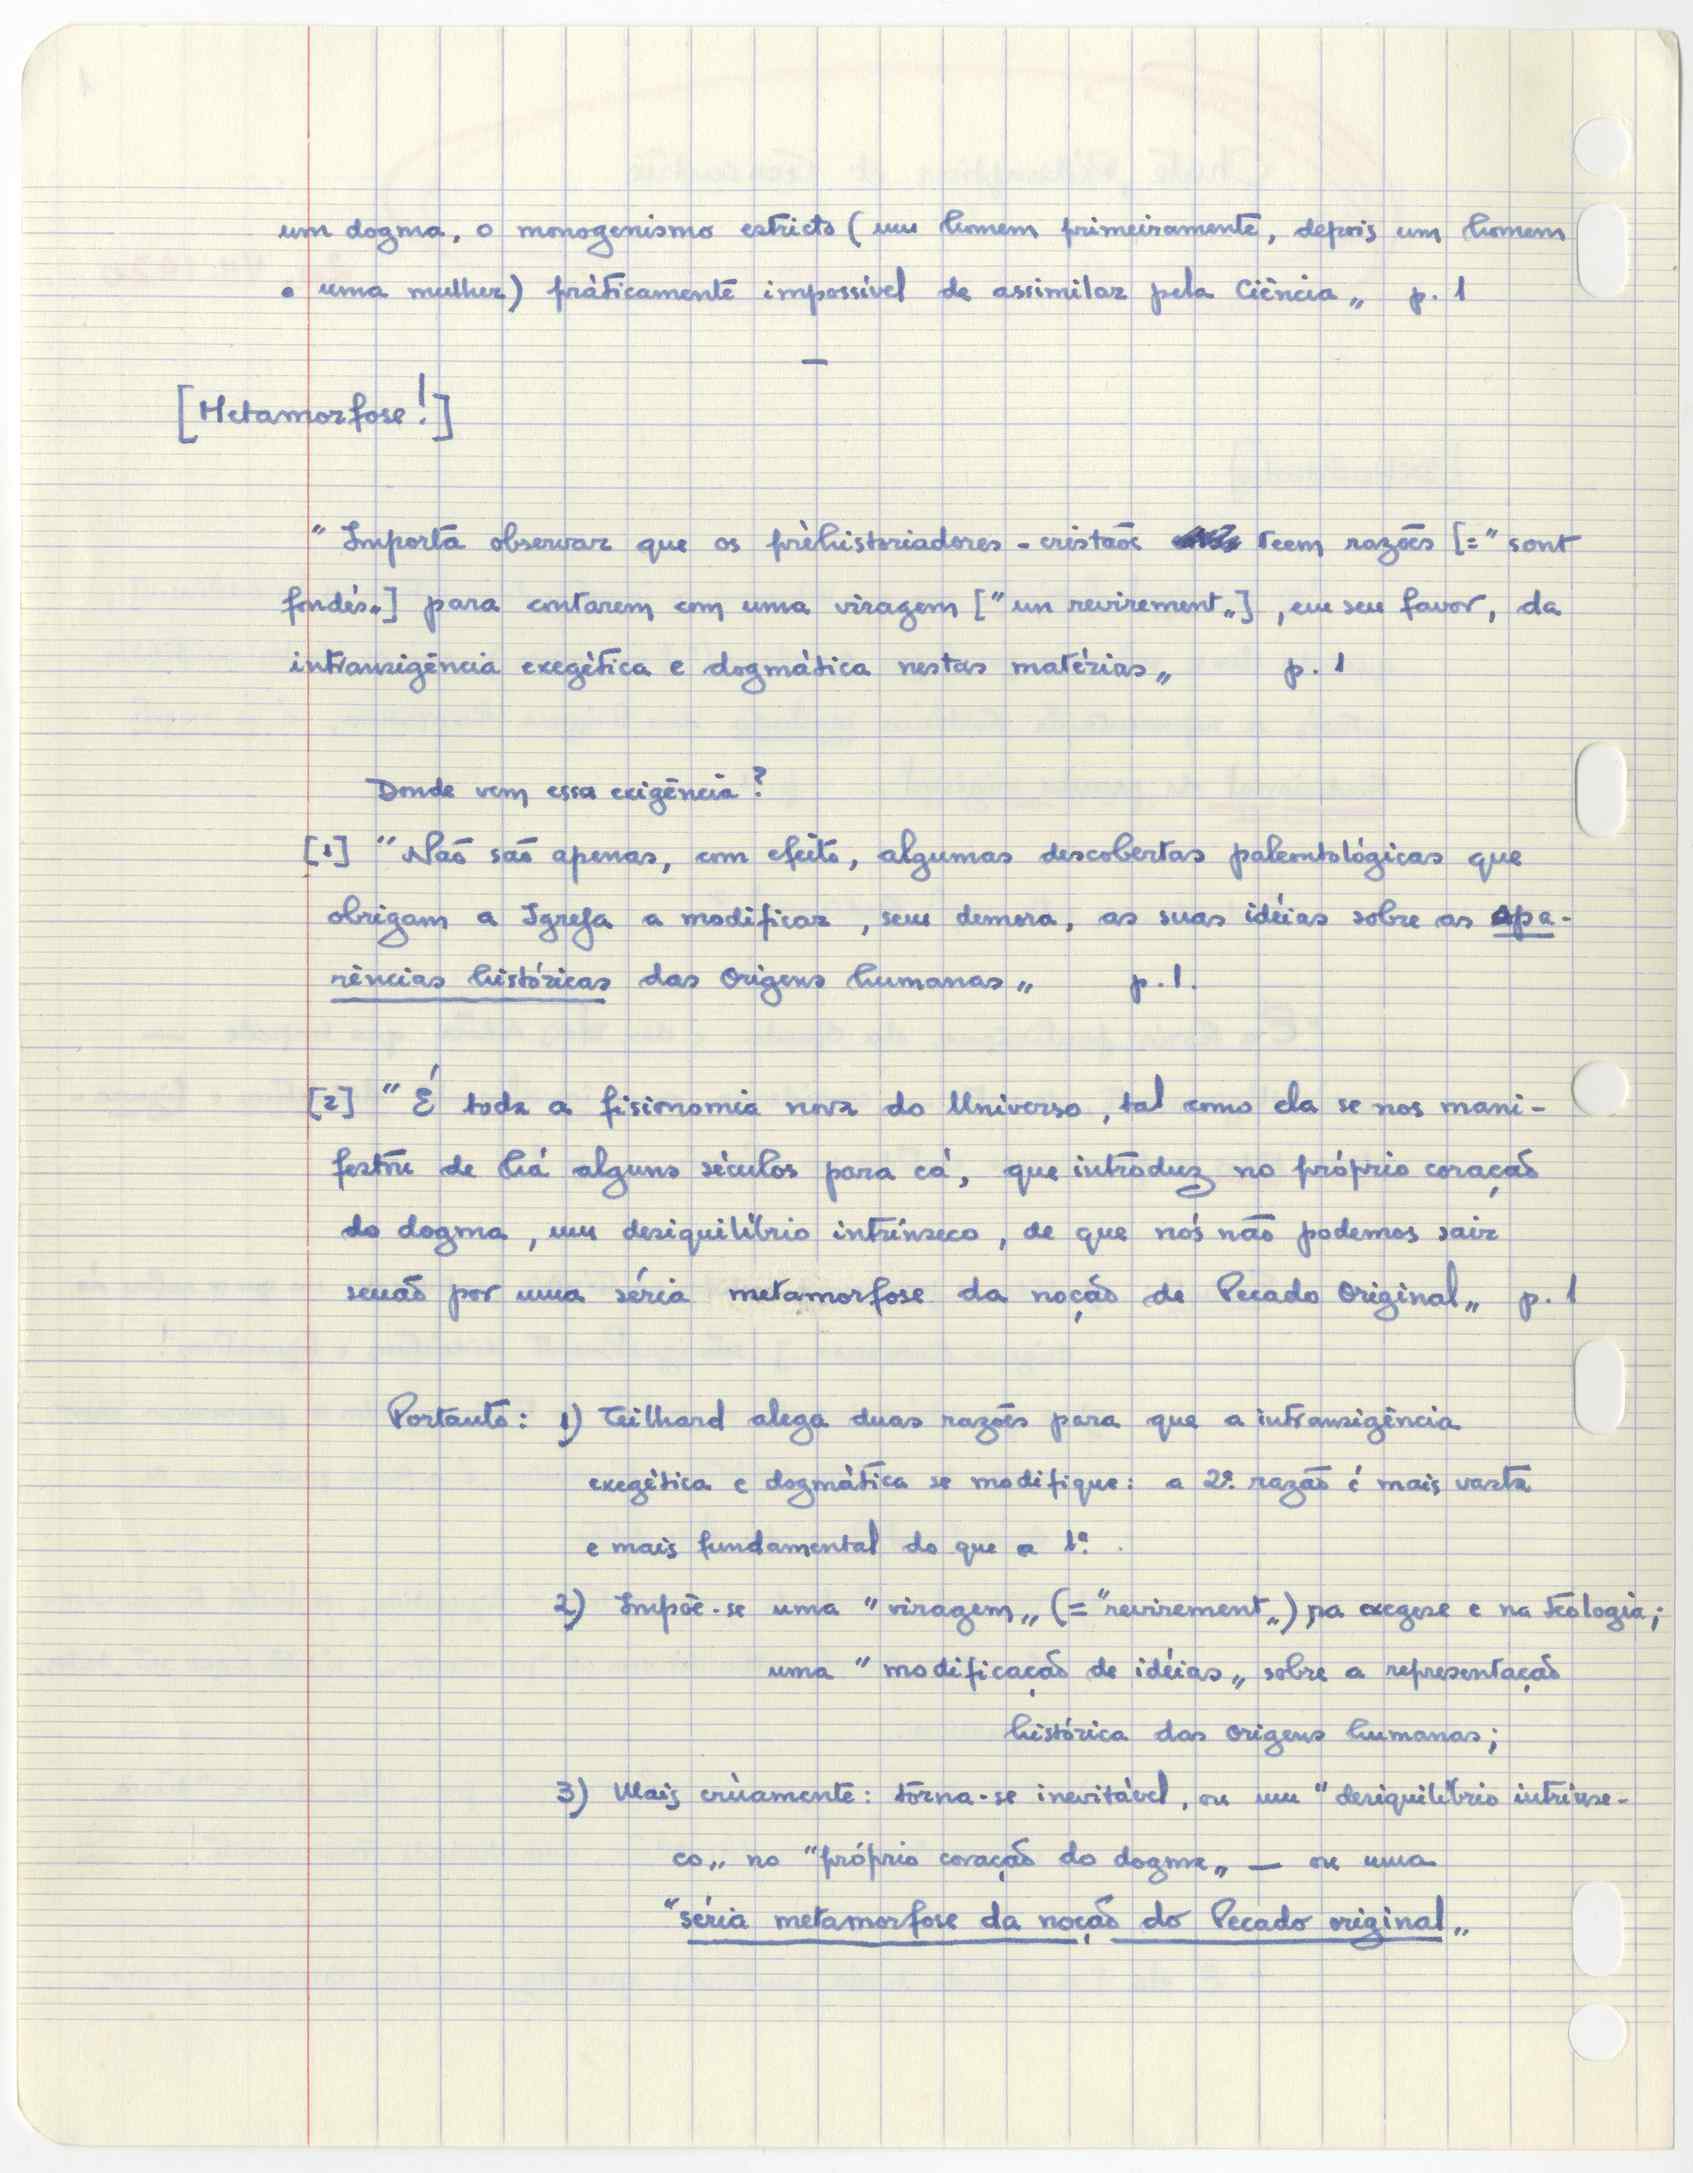 um dogma, o monogenismo estricto (um homem primeiramente, depois um homem
e uma mulher) pràticamente impossível de assimilar pela Ciência„ p. 1
—
[Metamorfose!]
"Importa observar que os prèhistoriadores-cristãos teem razões [="sont
fondés„] para contarem com uma viragem ["un revirement„], em seu favor, da
intransigência exegética e dogmática nestas matérias„ p. 1
Donde vem essa exigência?
[1] "Não são apenas, com efeito, algumas descobertas paleontológicas que
obrigam a Igreja a modificar, sem demora, as suas idéias sobre as apa-
rências históricas das Origens humanas„ p. 1.
[2] "É toda a fisionomia nova do Universo, tal como ela se nos mani-
festou de há alguns séculos para cá, que introduz no próprio coração
do dogma, um desiquilíbrio intrínseco, de que nós não podemos sair
senão por uma séria metamorfose da noção de Pecado Original„ p. 1
Portanto: 1) Teilhard alega duas razões para que a intransigência
exegética e dogmática se modifique: a 2ª. razão é mais vasta
e mais fundamental do que a 1ª.
2) Impõe-se uma "viragem„ (="revirement„) na exegese e na teologia;
uma "modificação de idéias„ sobre a representação
histórica das origens humanas;
3) Mais crùamente: torna-se inevitável, ou um "desiquilíbrio intrinse-
co„ no "próprio coração do dogma„ — ou uma
"séria metamorfose da noção do Pecado original„